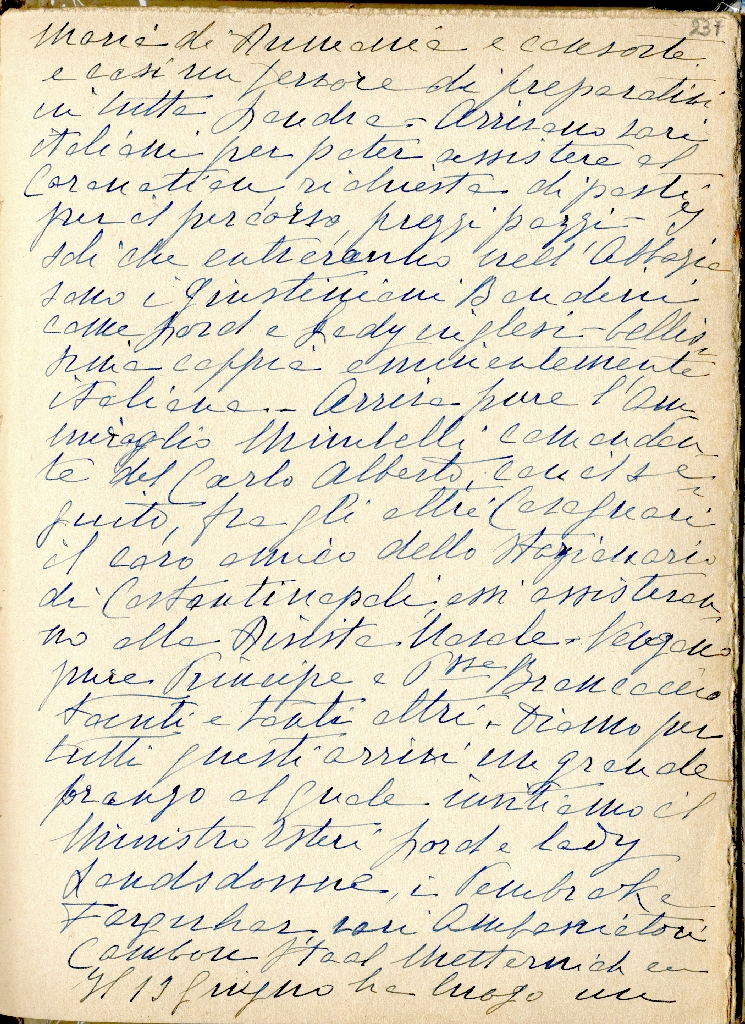 237
Maria di Rumania e consorte
e così un fervore di preparativi
in tutta Londra - Arrivano vari
italiani per poter assistere al
Coronation richiesta di posti
per il percorso, prezzi pazzi -
soli che entreranno nell'Abbazia
sono i Giustiniani Bandini
come Lord e Lady inglesi - bellis-
sima coppia eminentemente
italiana - Arriva pure l'am-
miraglio Mirabelli comandan-
te del Carlo Alberto, con il se-
guito, fra gli altri Casagnari
il caro amico dello stazionario
di Costantinopoli, essi assisteran-
no alla Rivista Navale - Vengono
pure Principe e Pssa Brancaccio
tanti e tanti altri - Diamo per
tutti questi arrivi un grande
pranzo al quale invitiamo il
Ministro Esteri Lord e lady
Landsdowne, i Pembroke
Farquhar vari Ambasciatori
Cambon Staal Metternich en
Il 13 giugno ha luogo un